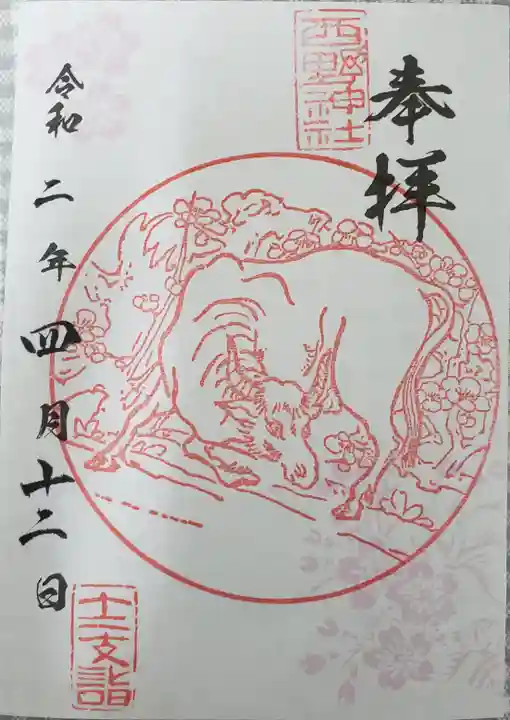 奉拝
西野神社
令和二年四月十二日
十二支詣